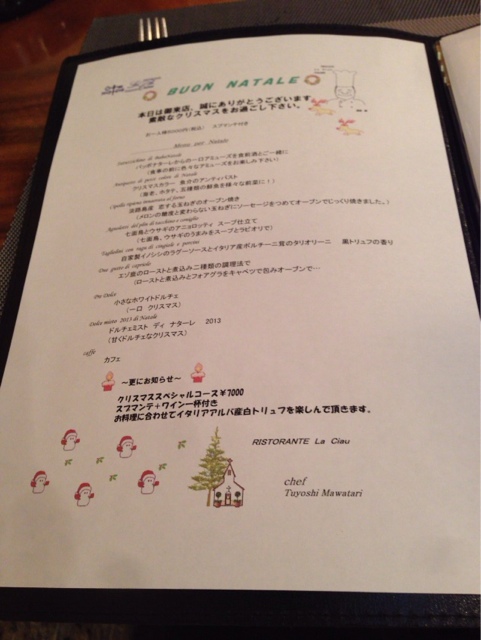 BUON NATALE
本日は御来店、誠にありがとうございます。
素敵なクリスマスをお過ごし下さい。
Menu per Natale
バンボケターレからの一口アミューズを食前酒とご一緒に
(食事の前に色々なアミューズをお楽しみ下さい)
クリスマスカラー 魚介のアンティパスト
(海老、ホタテ、五種類の鮮魚を様々な前菜に!)
淡路島産 恋する玉ねぎのオーブン焼き
(メロンの糖度と変わらない玉ねぎにソーセージをつめてオーブンでじっくり焼きました。)
七面鳥とウサギのアニョロッティ スープ仕立て
(七面鳥、ウサギのうまみをスープとラビオリで)
自家製イノシシのラグーソースとイタリア産ポルチーニ茸のタリオリーニ 黒トリュフの香り
エゾ鹿のローストと煮込み二種類の調理法で
(ローストと煮込みとフォアグラをキャベツで包みオーブンで…
Pre Dolce
小さなホワイトドルチェ
(一口 クリスマス)
Dolce misto 2013 di Natale
ドルチェミスト ディ ナターレ 2013
(甘くドルチェなクリスマス)
caffe
カフェ
~更にお知らせ~
クリスマススペシャルコース¥7000
スプマンテ+ワイン一杯付き
お料理に合わせてイタリアアルバ産白トリュフを楽しんで頂きます。
RISTORANTE La Ciau
chef
Tuyoshi Mawatari